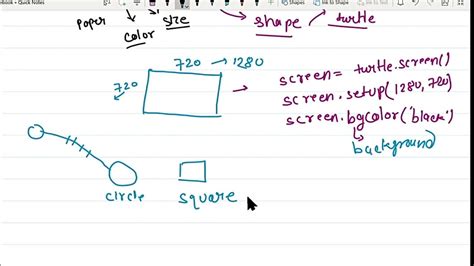 Ink to Shape Ink to Text
paper color size shape turtle
720 → 1280
720
screen = turtle.screen()
screen.setup(1280, 720)
screen.bgcolor('black')
background
circle square